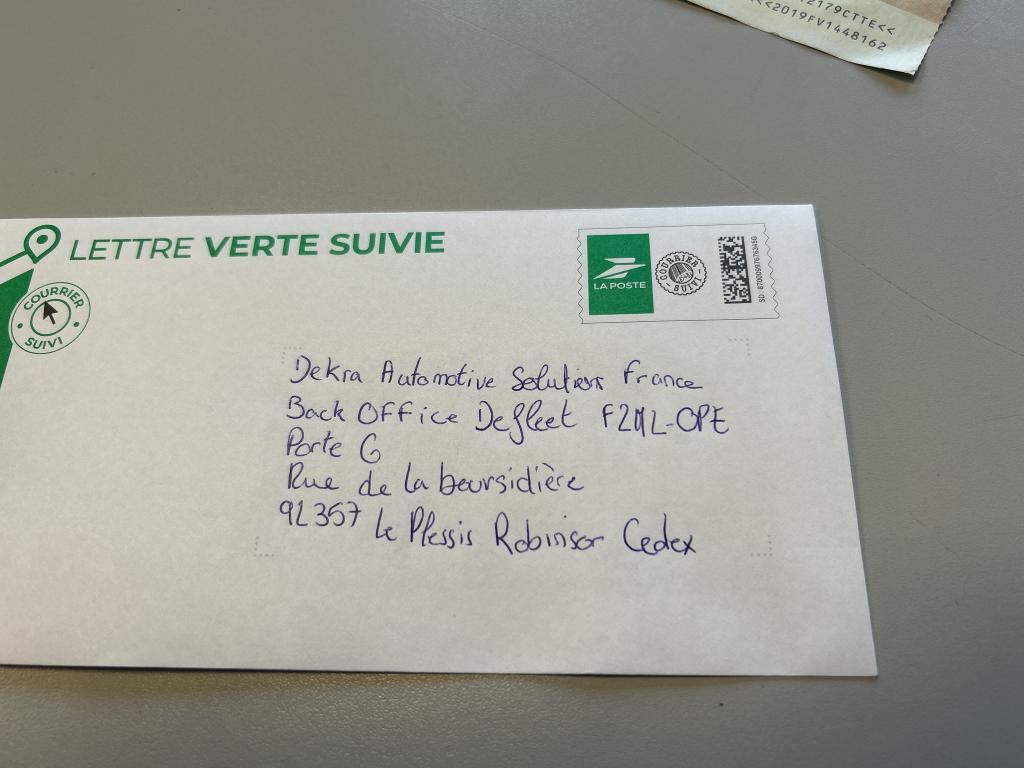 2179CTTE<<
<<2019FV1448162
LETTRE VERTE SUIVIE
COURRIER SUIVI
LA POSTE
COURRIER SUIVI
SD: 87000997676345G
Dekra Automotive Solutions France
Back Office Defleet F2ML-OPE
Porte G
Rue de la boursidière
92357 Le Plessis Robinson Cedex